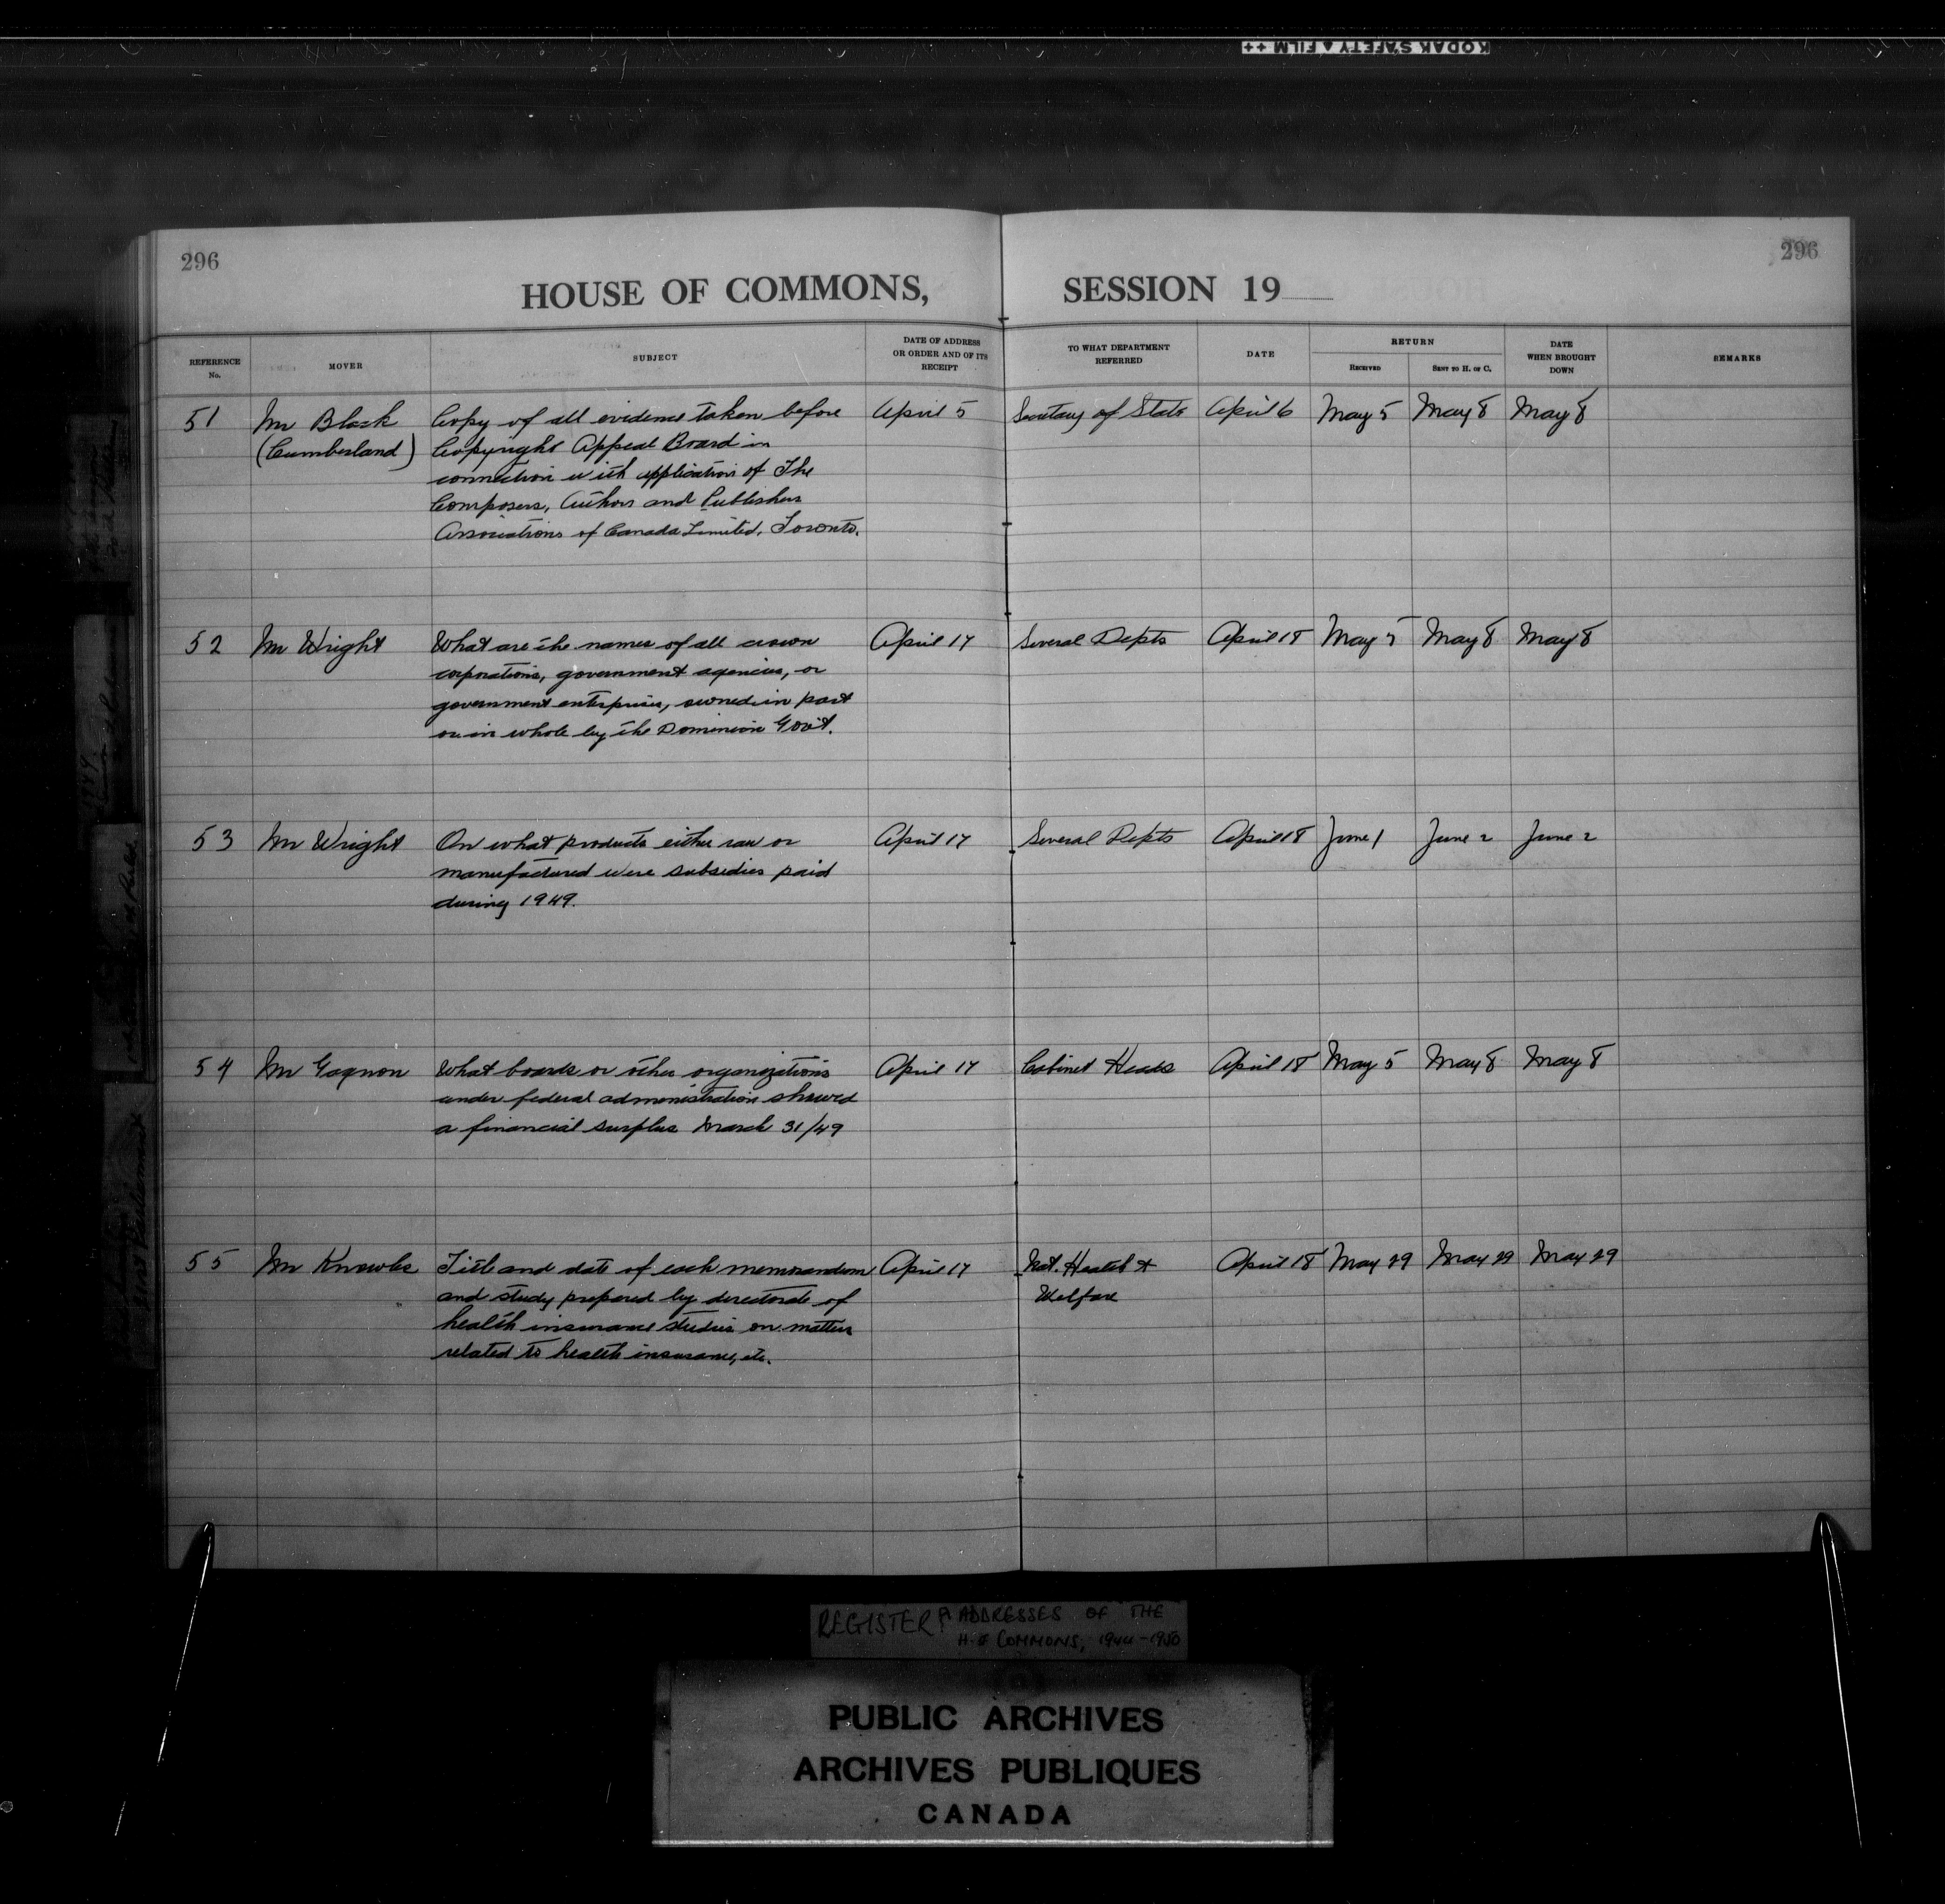 KODAK SAFETY FILM ++
296
296
HOUSE OF COMMONS, SESSION 19
REFERENCE No.
MOVER
SUBJECT
DATE OF ADDRESS OR ORDER AND OF ITS RECEIPT
TO WHAT DEPARTMENT REFERRED
DATE
RETURN
RECEIVED
SENT TO H. OF C.
DATE WHEN BROUGHT DOWN
REMARKS
51 Mr Black Copy of all evidence taken before April 5 Secretary of State April 6 May 5 May 8 May 8
(Cumberland) Copyright Appeal Board in
connection with application of The
Composers, Authors and Publishers
Associations of Canada Limited, Toronto.
52 Mr Wright What are the names of all crown April 17 Several Depts April 18 May 5 May 8 May 8
corporations, government agencies, or
government enterprises, owned in part
or in whole by the Dominion Gov't.
53 Mr Wright On what products either raw or April 17 Several Depts April 18 June 1 June 2 June 2
manufactured were subsidies paid
during 1949.
54 Mr Gagnon What boards or other organizations April 17 Cabinet Heads April 18 May 5 May 8 May 8
under federal administration showed
a financial surplus March 31/49
55 Mr Knowles Title and date of each memorandum April 17 Nat. Health & April 18 May 29 May 29 May 29
and study prepared by directorate of Welfare
health insurance studies on matters
related to health insurance, etc.
REGISTER ADDRESSES OF THE
H. of COMMONS, 1944-1950
PUBLIC ARCHIVES
ARCHIVES PUBLIQUES
CANADA